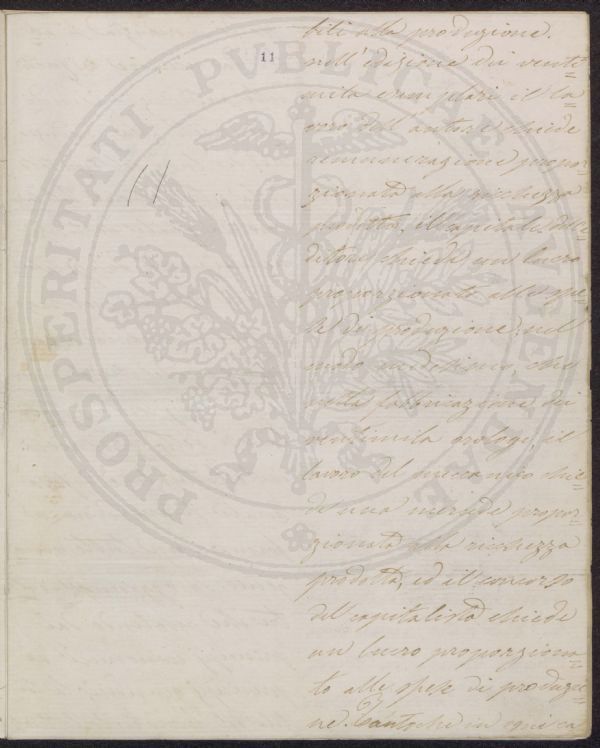 11
11
PROSPERITATI PUBLICAE AUGENDAE
bili alla produzione.
nell'edizione dei venti=
mila esemplari il la=
voro dell'autore chiede
remunerazione propor=
zionata alla ricchezza
prodotta, il capitale dell'e=
ditore chiede un lucro
proporzionato alle spe=
se di produzione; nel
modo medesimo, che
nella fabbricazione dei
ventimila orologi, il
lavoro del meccanico chie=
de una mercede propor=
zionata alla ricchezza
prodotta, ed il concorso
del capitalista chiede
un lucro proporziona=
to alle spese di produzio=
ne. Tantoché in ogni ca